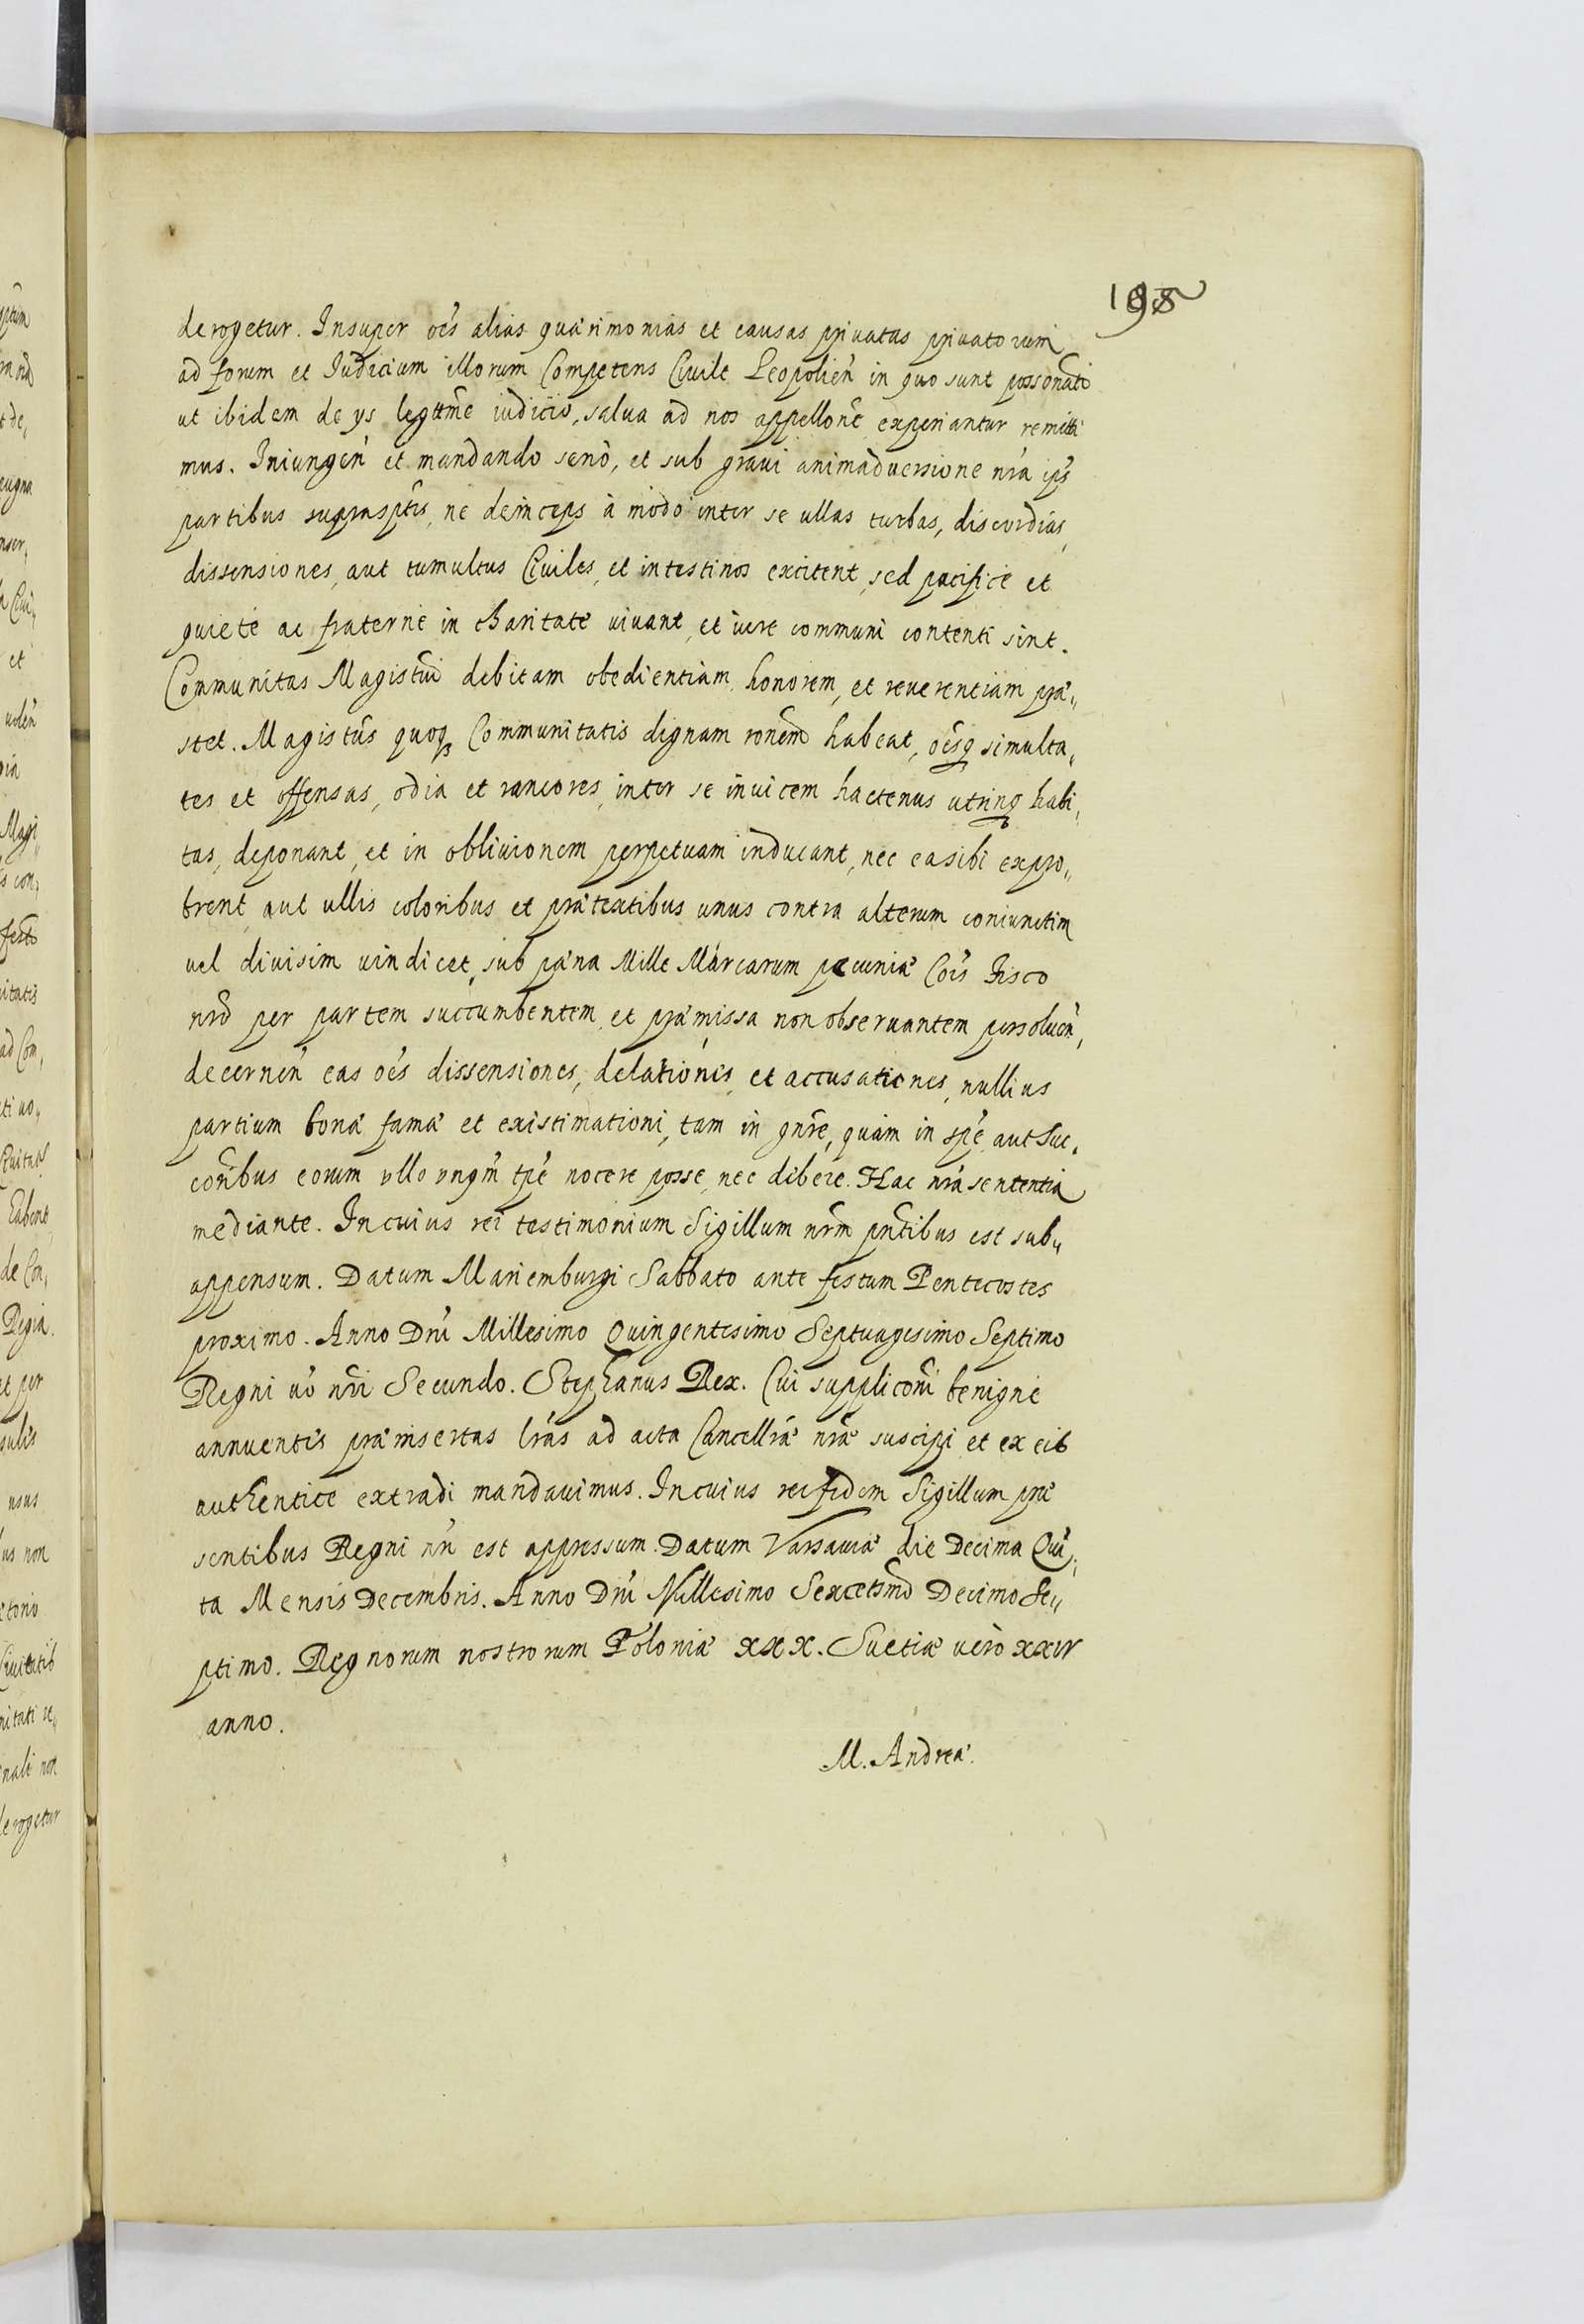 198
derogetur. Insuper oe͂s alias quærimonias et causas priuatas priuatorum
ad forum et Iudicium illorum Competens Ciuile Leopolieñ in quo sunt possonati
ut ibidem de ys legitme iudicio, salua ad nos appellone experiantur remitti
mus. Iniungeñ et mandando serio, et sub graui animaduersione nr̃a ip̃s
partibus suprasptis, ne deinceps à modo inter se ullas turbas, discordias,
dissensiones, aut tumultus Ciuiles, et intestinos excitent, sed pacificè et
quietè ac fraternè in charitate uiuant, et iure communi contenti sint.
Communitas Magistui debitam obedientiam, honorem, et reuerentiam præ„
stet. Magistus quoq₃ Communitatis dignam ronem habeat, oe͂sq₃ simulta„
tes et offensas, odia et rancores, inter se inuicem hactenus utrinq₃ habi„
tas, deponant, et in obliuionem perpetuam inducant, nec ea sibi expro„
brent aut ullis coloribus et prætextibus unus contra alterum coniunctim
uel diuisim uindicet, sub pæna Mille Marcarum pecuniæ Cois Fisco
nrõ per partem succumbentem, et præmissa non obseruantem persolueñ,
decerneñ eas oe͂s dissensiones, delationes, et accusationes, nullius
partium bonæ famæ et existimationi, tam in gnr̃e, quam in spẽ aut Suc„
coribus eorum ullo unqm̃ tpẽ nocere posse, nec debere. Hac nr̃a sententia
mediante. In cuius rei testimonium Sigillum nrm̃ pñtibus est sub„
appensum. Datum Mariemburgi Sabbato ante festum Pentecostes
proximo. Anno Dñi Millesimo Quingentesimo Septuagesimo Septimo
Regni uõ nri Secundo. Stephanus Rex. Cui suppliconi benignè
annuentes præinsertas lrãs ad acta Cancellr̃æ nr̃æ suscipi et ex eis
authentice extradi mandauimus. In cuius rei fidem Sigillum præ
sentibus Regni nr̃i est appressum. Datum Varsauiæ die Decima Qui„
ta Mensis Decembris. Anno Dñi Millesimo Sexcetsmo Decimo Se„
ptimo. Regnorum nostrorum Poloniæ xxx. Suetiæ uerò xxiv
anno.
M. Andreæ.